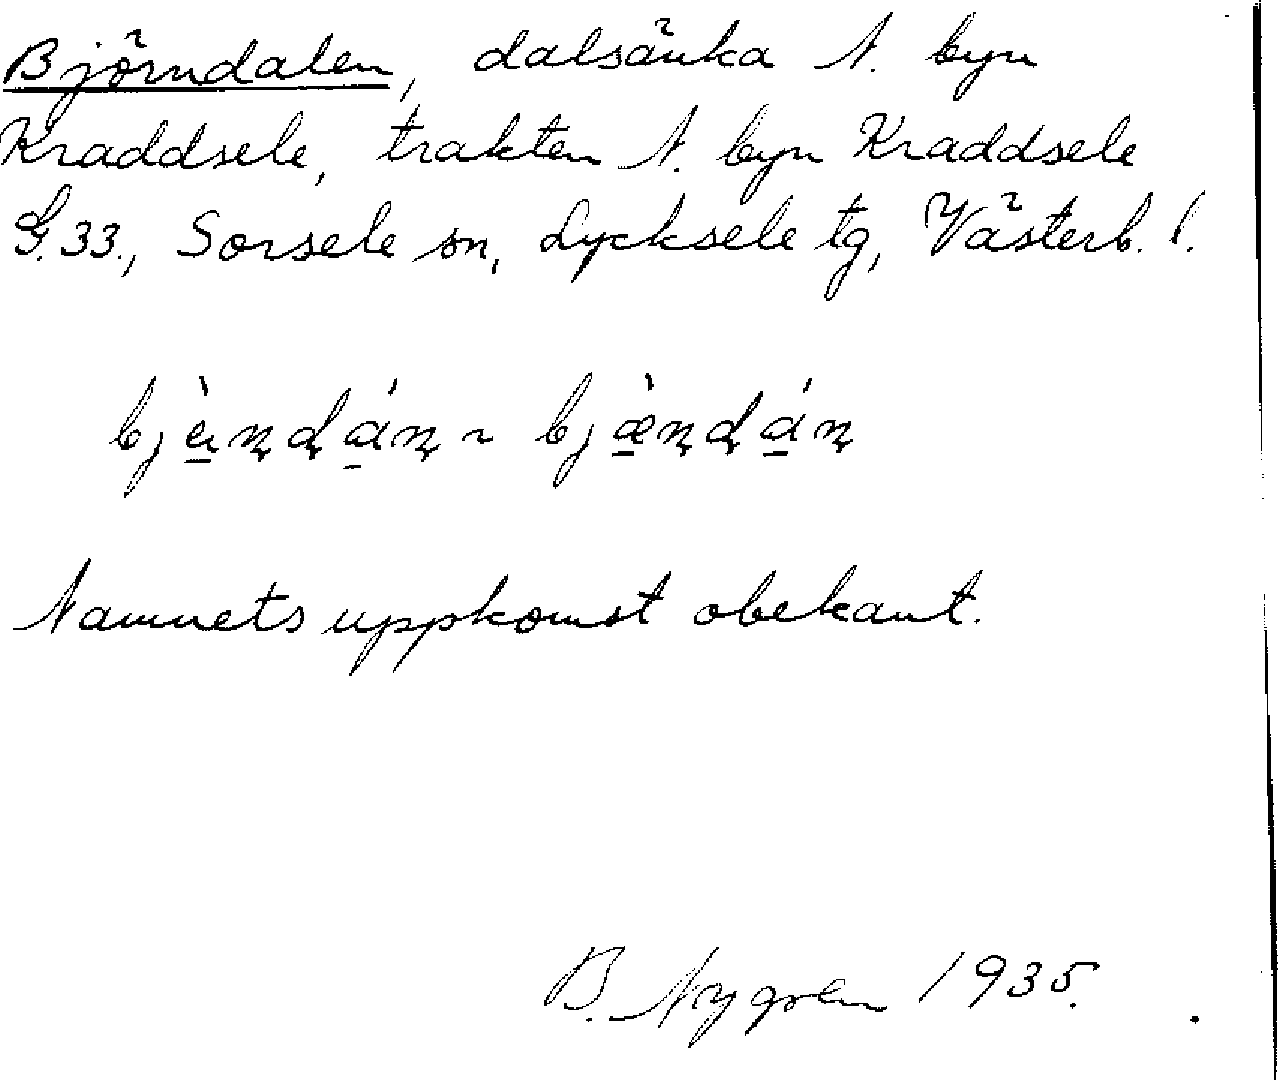 Björndalen, dalsänka N. byn
Kraddsele, trakten N. byn Kraddsele
G. 33., Sorsele sn, Lycksele tg, Västerb. l.
Namnets uppkomst obekant.
B. Nygren 1935.